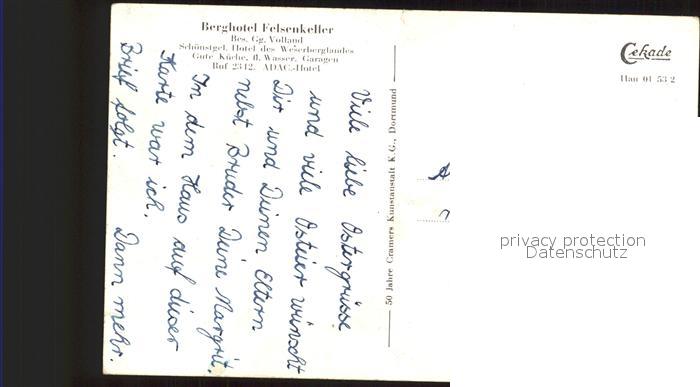 Berghotel Felsenkeller
Bes. Gg. Volland
Schönstgel. Hotel des Weserberglandes
Gute Küche, fl. Wasser, Garagen
Ruf 2342. ADAC-Hotel
Viele liebe Ostergrüsse
und viele Ostereier wünscht
Dir und Deinen Eltern
nebst Bruder Deine Margrit.
In dem Haus auf dieser
Karte war ich.
Brief folgt. Dann mehr.
50 Jahre Cramers Kunstanstalt K.G., Dortmund
Cekade
Han 01 53 2
privacy protection
Datenschutz